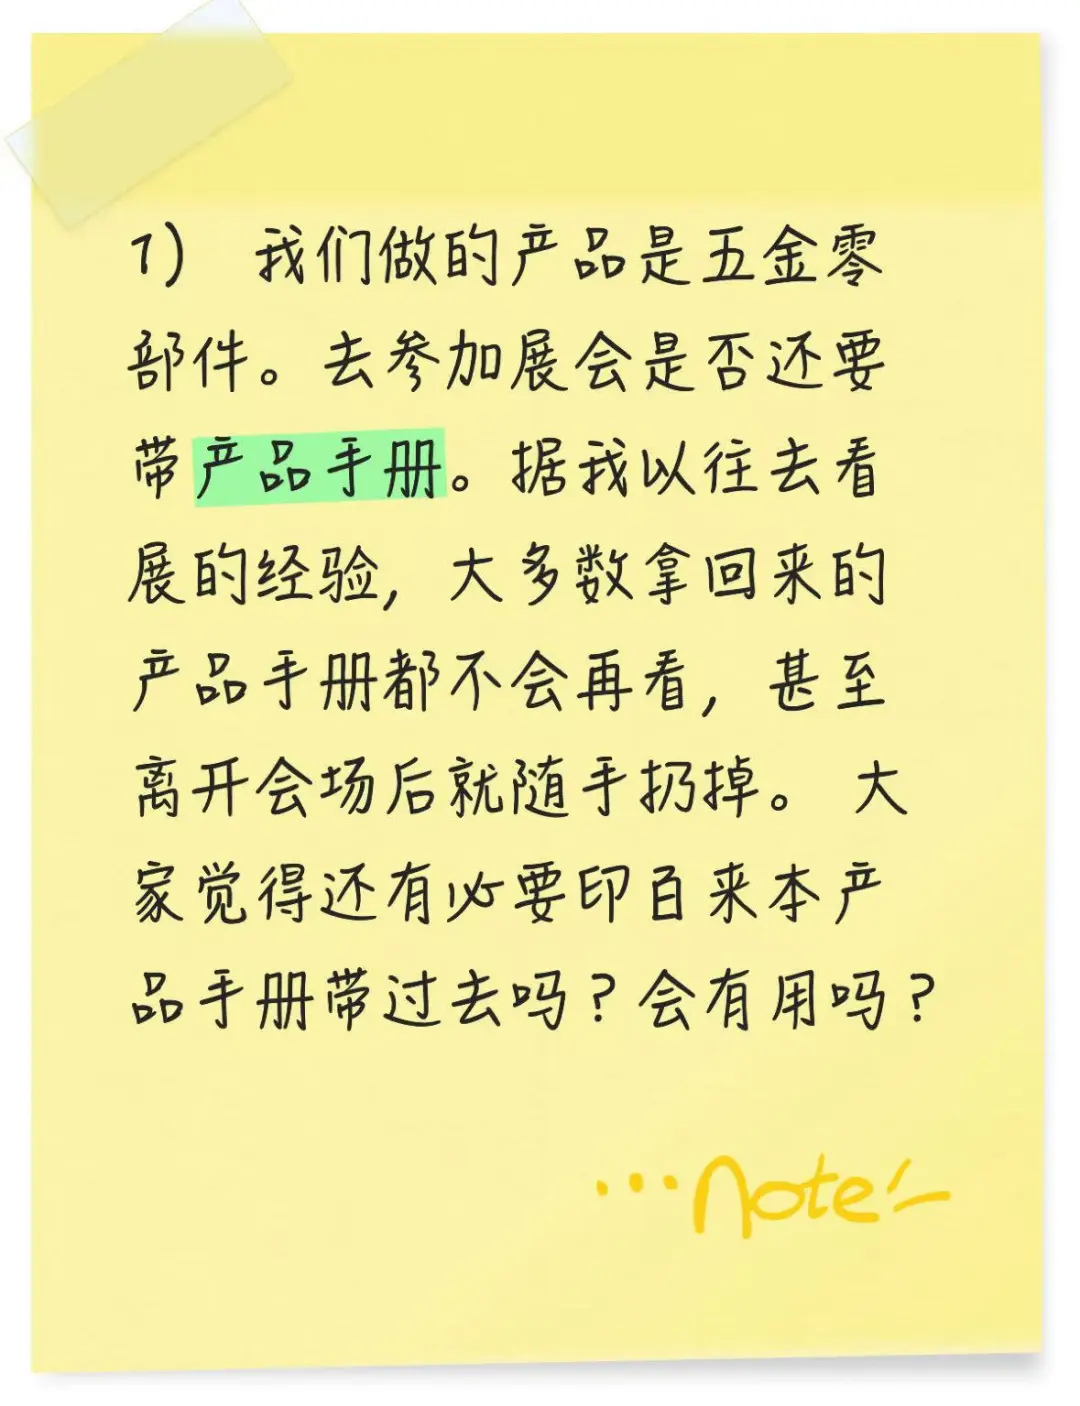 1) 我们做的产品是五金零
部件。去参加展会是否还要
带产品手册。据我以往去看
展的经验, 大多数拿回来的
产品手册都不会再看, 甚至
离开会场后就随手扔掉。 大
家觉得还有必要印百来本产
品手册带过去吗? 会有用吗?
...note